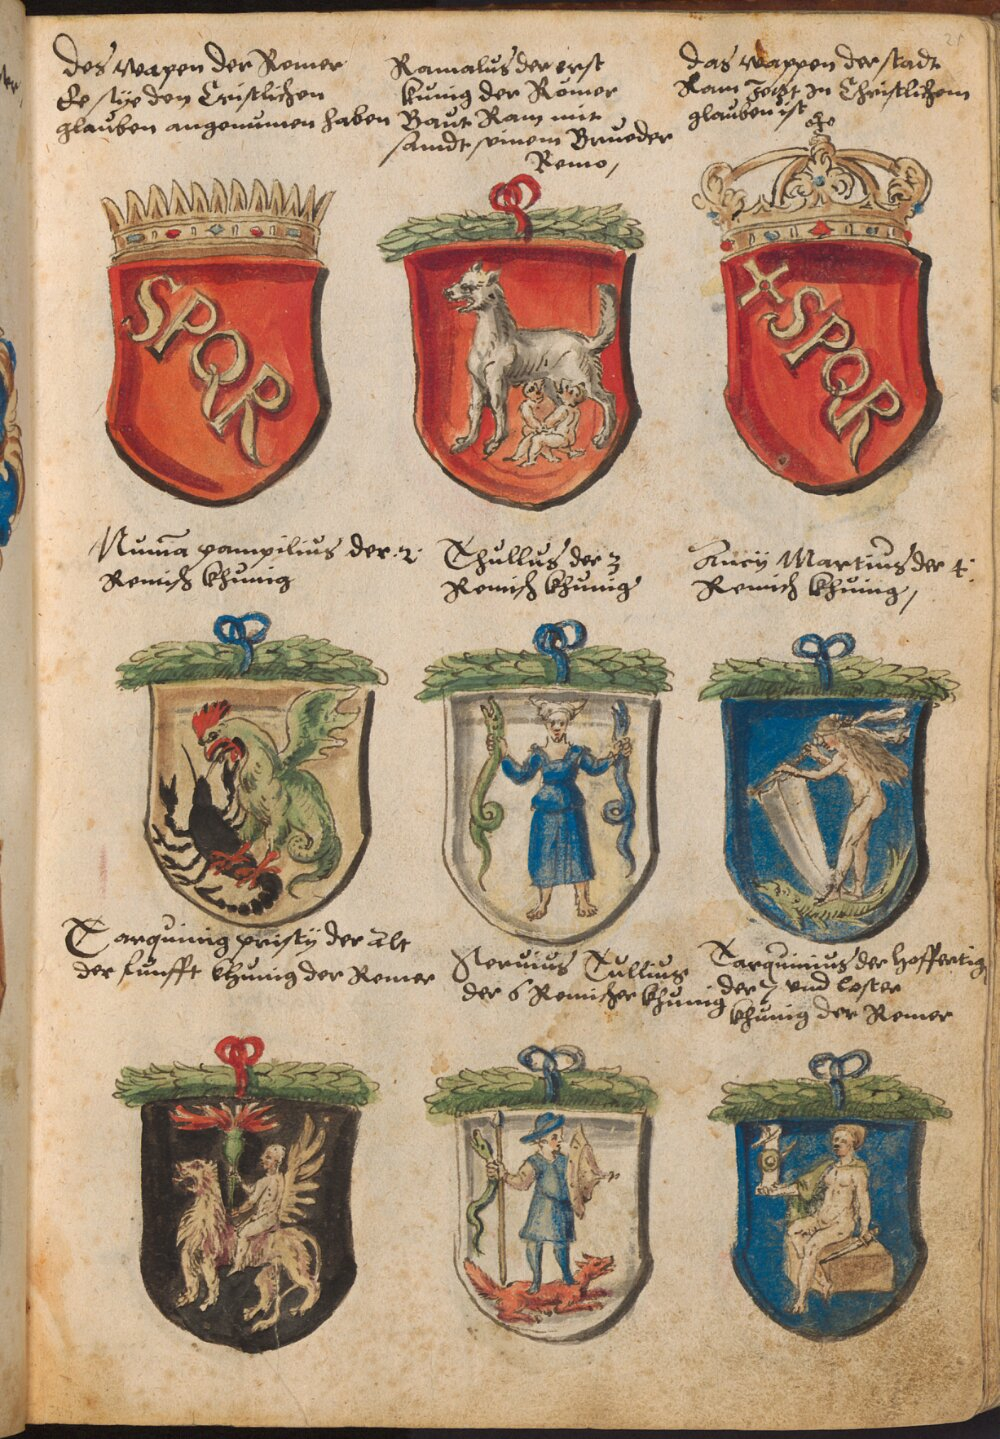 des wapen der Romer
Ee sye den Cristlichen
glauben angenumen haben
Ramalus der erst
kunig der Romer
Baut Ram mit
sambt seinem Brueder
Remo,
das wappen der stadt
Ram Jetzt in Christlichem
glauben ist
21
SPQR
SPQR
Numa pampilius der 2:
Romisch khunig
Thullus der 3
Romisch khunig
Ancy Martius der 4:
Romisch khunig,
Tarquinig pristy der Alt
der funfft khunig der Romer
Servius Tullius
der 6 Romischer khunig
Tarquinius der hoffertig
der 7 und letzter
khunig der Romer